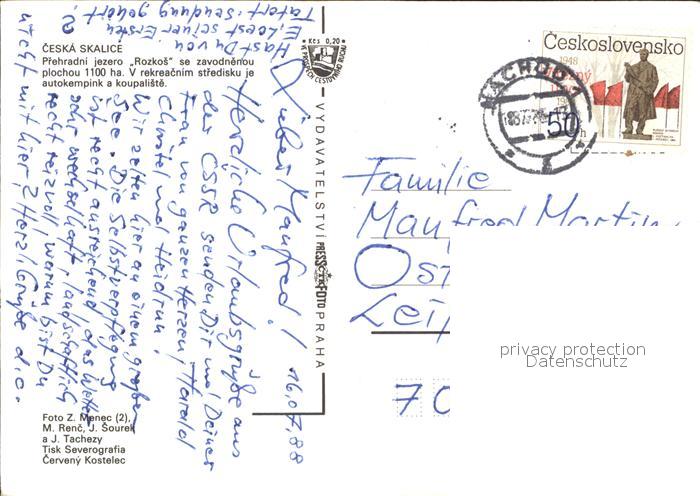 ČESKÁ SKALICE
Přehradní jezero „Rozkoš" se zavodněnou
plochou 1100 ha. V rekreačním středisku je
autokempink a koupaliště.
Kčs 0,20
VYDAVATELSTVÍ PRESSFOTO PRAHA
Československo
1948
50 h
NÁCHOD 1
Lieber Manfred! 16.07.88
Herzliche Urlaubsgrüße aus
der CSSR senden Dir und Deiner
Frau von ganzen Herzen, Harald
Christel und Heidrun.
Wir zelten hier an einem großen
See. Die Selbstverpflegung
ist recht ausreichend, das Wetter
sehr wechselhaft, landschaftlich
recht reizvoll, warum bist Du
nicht mit hier? Herzl. Grüße d.o.
Hast Du von
E. Loest seiner Ersten
Tatort-Sendung gehört?
Familie
Manfred Martin
Ost
Leip
70
privacy protection
Datenschutz
Foto Z. Menec (2),
M. Renč, J. Šourek
a J. Tachezy
Tisk Severografia
Červený Kostelec